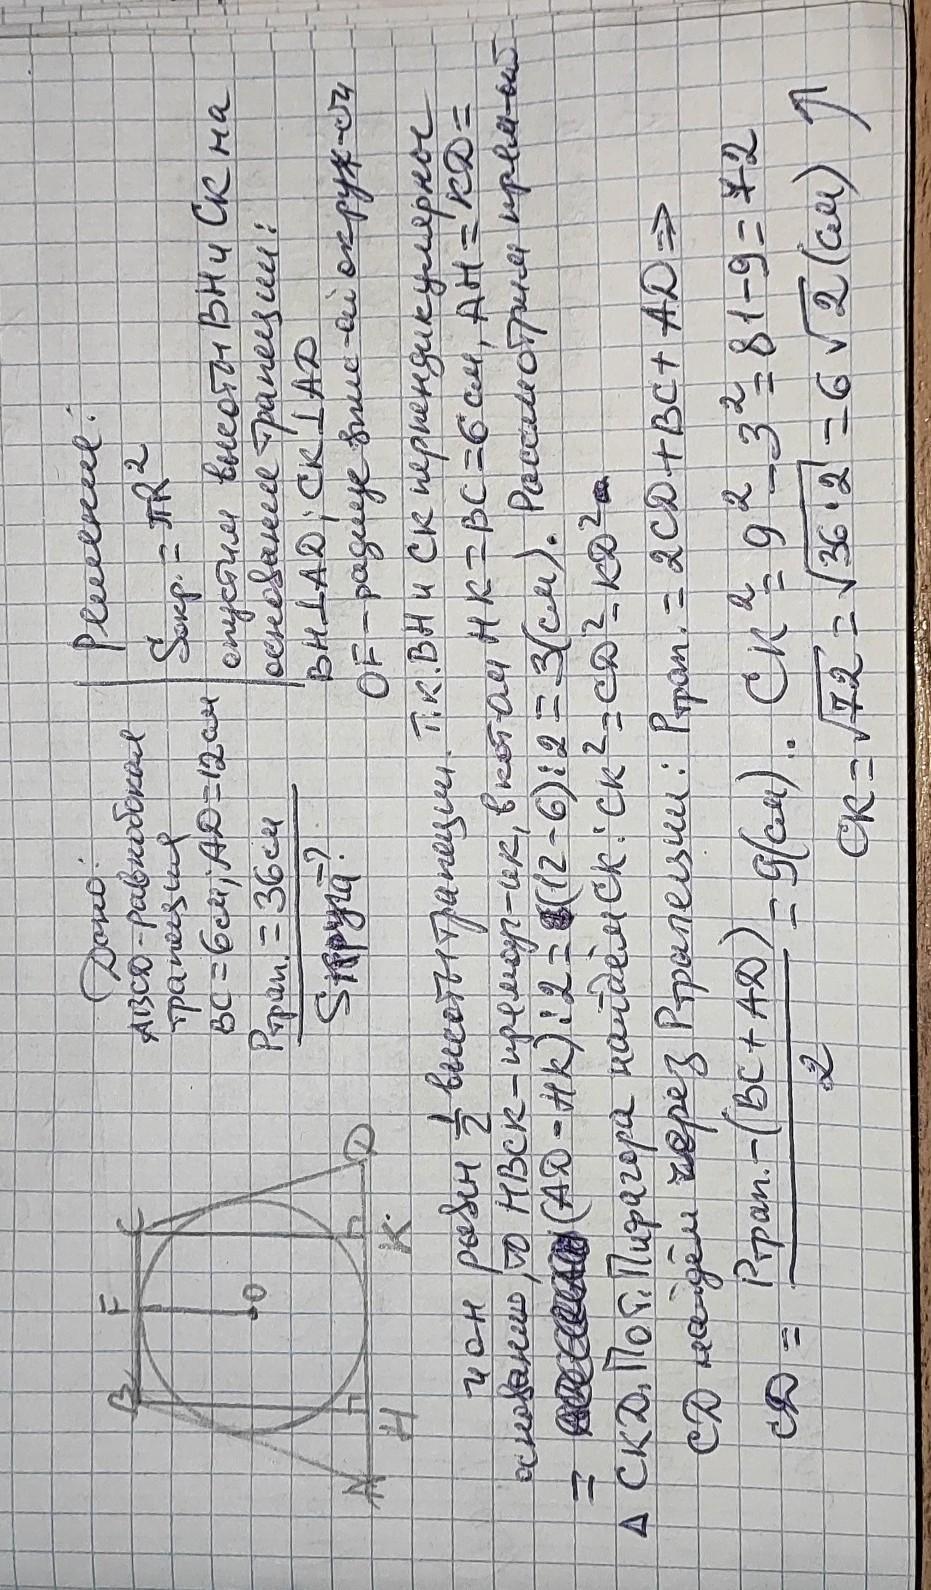 Дано:
ABCD-равнобокая
трапеция
BC = 6см; AD = 12см
Pтрап. = 36 см
Sкруга?
Решение:
Sокр. = πR²
опустим высоты BH и CK на
основание трапеции:
BH⊥AD; CK⊥AD
OF – радиус впис-ой окруж-сти
B F C
O
A H K D
и он равен 1/2 высоты трапеции. Т.к. BH и CK перпендикулярные
основанию, то HBCK – прямоуг-ик, в котом HK = BC = 6 см, AH = KD =
= (AD – HK) : 2 = (12 – 6) : 2 = 3(см). Рассмотрим прям-ый
Δ CKD. По т. Пифагора найдём CK: CK² = CD² – KD²
CD найдём через Pтрапеции: Pтрап. = 2CD + BC + AD ⇒
CD = Pтрап. – (BC + AD) / 2 = 9(см). CK² = 9² – 3² = 81 – 9 = 72
CK = √72 = √36·2 = 6√2 (см)